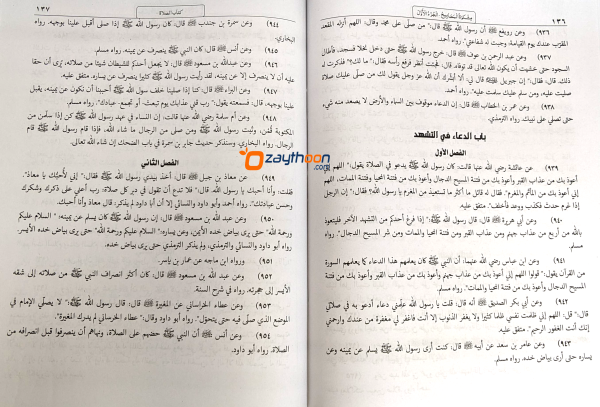 ١٣٦
مشكاة المصابيح - الجزء الأول
٩٣٦) وعن رويفع أن رسول الله ﷺ قال: "من صلّى على محمد وقال: اللهم أنزله المقعد
المقرّب عندك يوم القيامة، وجبت له شفاعتي". رواه أحمد.
٩٣٧) وعن عبد الرحمن بن عوف قال: خرج رسول الله ﷺ حتى دخل نخلا فسجد، فأطال
السجود حتى خشيت أن يكون الله تعالى قد توفاه. قال: فجئت أنظر فرفع رأسه فقال: "ما لك؟" فذكرت له
ذلك. قال: فقال: "إن جبريل قال لي: ألا أبشرك أن الله عز وجل يقول لك من صلّى عليك صلاة
صليت عليه، ومن سلم عليك سلمت عليه". رواه أحمد.
٩٣٨) وعن عمر بن الخطاب قال: إن الدعاء موقوف بين السماء والأرض لا يصعد منه شيء
حتى تصلي على نبيك. رواه الترمذي.
باب الدعاء في التشهد
الفصل الأول
٩٣٩) عن عائشة رضي الله عنها قالت: كان رسول الله ﷺ يدعو في الصلاة يقول: "اللهم إني
أعوذ بك من عذاب القبر وأعوذ بك من فتنة المسيح الدجال وأعوذ بك من فتنة المحيا وفتنة الممات، اللهم
إني أعوذ بك من المأثم والمغرم". فقال له قائل ما أكثر ما تستعيذ من المغرم يا رسول الله؟ فقال: "إن الرجل
إذا غرم حدث فكذب ووعد فأخلف". متفق عليه.
٩٤٠) وعن أبي هريرة قال: قال رسول الله ﷺ: "إذا فرغ أحدكم من التشهد الآخر فليتعوذ
بالله من أربع من عذاب جهنم ومن عذاب القبر ومن فتنة المحيا والممات ومن شر المسيح الدجال". رواه
مسلم.
٩٤١) وعن ابن عباس رضي الله عنهما، أن النبي ﷺ كان يعلمهم هذا الدعاء كما يعلمهم السورة
من القرآن يقول: "قولوا اللهم إني أعوذ بك من عذاب جهنم وأعوذ بك من عذاب القبر وأعوذ بك من فتنة
المسيح الدجال وأعوذ بك من فتنة المحيا والممات". رواه مسلم.
٩٤٢) وعن أبي بكر الصديق أنه قال: قلت يا رسول الله علّمني دعاء أدعو به في صلاتي
قال: "قل: اللهم إني ظلمت نفسي ظلما كثيرا ولا يغفر الذنوب إلا أنت فاغفر لي مغفرة من عندك وارحمني
إنك أنت الغفور الرحيم". متفق عليه.
٩٤٣) وعن عامر بن سعد عن أبيه قال: كنت أرى رسول الله ﷺ يسلم عن يمينه وعن
يساره حتى أرى بياض خده. رواه مسلم.
كتاب الصلاة
١٣٧
٩٤٤) وعن سمرة بن جندب قال: كان رسول الله ﷺ إذا صلى أقبل علينا بوجهه. رواه
البخاري.
٩٤٥) وعن أنس قال: كان النبي ﷺ ينصرف عن يمينه. رواه مسلم.
٩٤٦) وعن عبدالله بن مسعود قال: لا يجعل أحدكم للشيطان شيئا من صلاته، يرى أن حقا
عليه أن لا ينصرف إلا عن يمينه، لقد رأيت رسول الله ﷺ كثيرا ينصرف عن يساره. متفق عليه.
٩٤٧) وعن البراء قال: كنا إذا صلينا خلف رسول الله ﷺ أحببنا أن نكون عن يمينه، يقبل
علينا بوجهه. قال: فسمعته يقول: "رب قني عذابك يوم تبعث- أو تجمع- عبادك". رواه مسلم.
٩٤٨) وعن أم سلمة رضي الله عنها قالت: إن النساء في عهد رسول الله ﷺ كن إذا سلمن من
المكتوبة قُمن، وثبت رسول الله ﷺ ومن صلى من الرجال ما شاء الله، فإذا قام رسول الله ﷺ قام
الرجال. رواه البخاري، وسنذكر حديث جابر بن سمرة في باب الضحك إن شاء الله تعالى.
الفصل الثاني
٩٤٩) عن معاذ بن جبل قال: أخذ بيدي رسول الله ﷺ فقال: "إني لأحبك يا معاذ".
فقلت: وأنا أحبك يا رسول الله. قال: "فلا تدع أن تقول في دبر كل صلاة: رب أعني على ذكرك وشكرك
وحسن عبادتك". رواه أحمد وأبو داود والنسائي إلا أن أبا داود لم يذكر: قال معاذ وأنا أحبك.
٩٥٠) وعن عبد الله بن مسعود قال: إن رسول الله ﷺ كان يسلم عن يمينه: "السلام عليكم
ورحمة الله" حتى يرى بياض خده الأيمن، وعن يساره: "السلام عليكم ورحمة الله" حتى يرى بياض خده الأيسر.
رواه أبو داود والنسائي والترمذي، ولم يذكر الترمذي حتى يرى بياض خده.
٩٥١) ورواه ابن ماجه عن عمار بن ياسر.
٩٥٢) وعن عبد الله بن مسعود قال: كان أكثر انصراف النبي ﷺ من صلاته إلى شقه
الأيسر إلى حجرته. رواه في شرح السنة.
٩٥٣) وعن عطاء الخراساني عن المغيرة قال: قال رسول الله ﷺ: "لا يصلّي الإمام في
الموضع الذي صلّى فيه حتى يتحوّل". رواه أبو داود، وقال: عطاء الخرساني لم يدرك المغيرة.
٩٥٤) وعن أنس أن النبي ﷺ حضهم على الصلاة، ونهاهم أن ينصرفوا قبل انصرافه من
الصلاة. رواه أبو داود.
zaythoon
.com